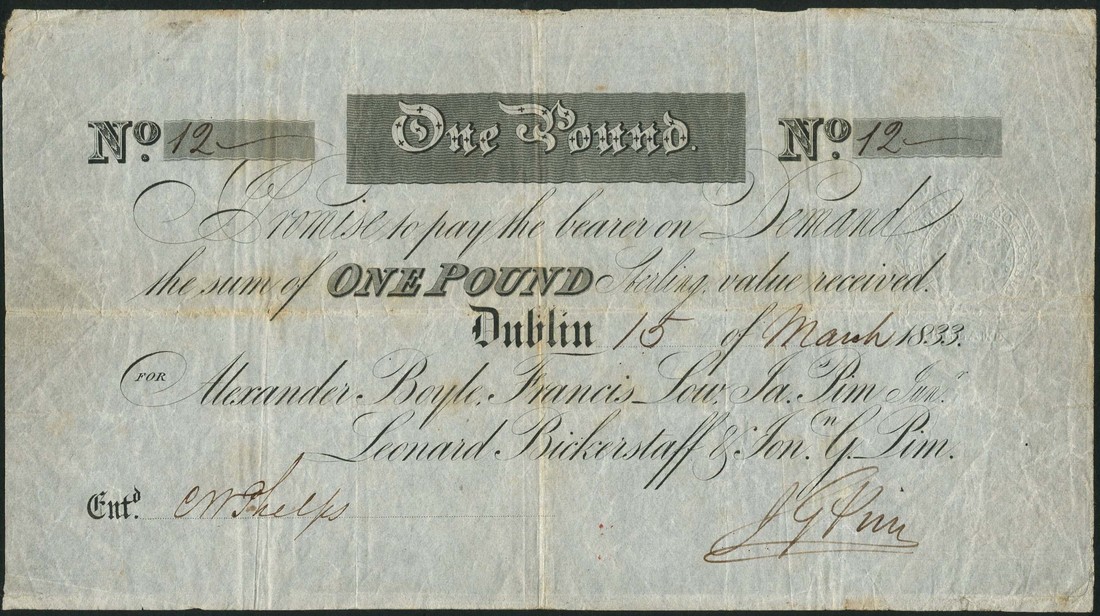 No. 12 One Pound. No. 12
I Promise to pay the bearer on Demand
the sum of ONE POUND Sterling, value received.
Dublin 15 of March 1833.
FOR Alexander Boyle, Francis Low, Ja.s Pim Jun.r
Leonard Bickerstaff & Jon.n G. Pim.
Ent.d CW Phelps J G Pim